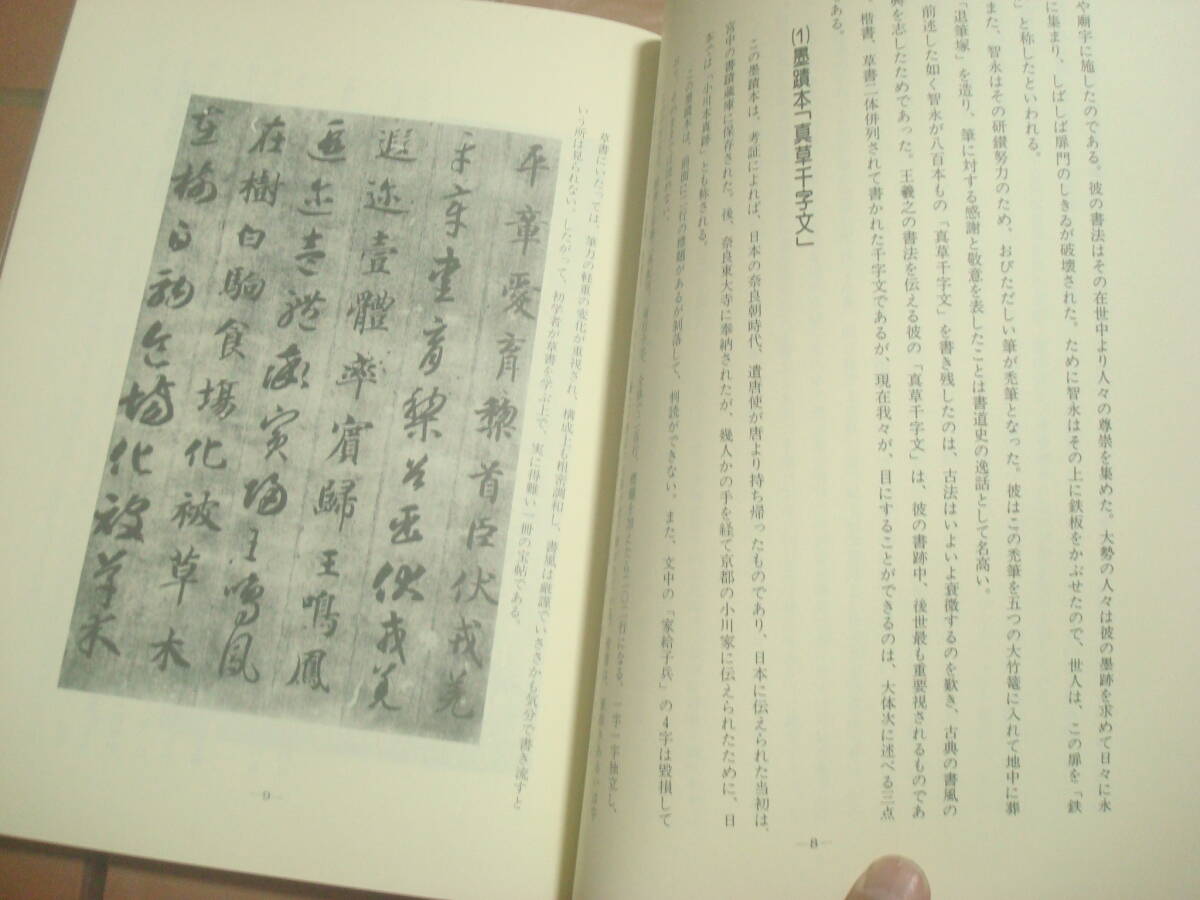 や廟宇に施したのである。彼の書法はその在世中より人々の尊崇を集めた。大勢の人々は彼の墨跡を求めて日々に永
に集まり、しばしば扉門のしきるが破壊された。ために智永はその上に鉄板をかぶせたので、世人は、この扉を「鉄
」と称したといわれる。
また、智永はその研鑚努力のため、おびただしい筆が禿筆となった。彼はこの禿筆を五つの大竹篭に入れて地中に葬
「退筆塚」を造り、筆に対する感謝と敬意を表したことは書道史の逸話として名高い。
前述した如く智永が八百本もの「真草千字文」を書き残したのは、古法はいよいよ衰微するのを歎き、古典の書風の
興を志したためであった。王羲之の書法を伝える彼の「真草千字文」は、彼の書跡中、後世最も重要視されるものであ
楷書、草書二体併列されて書かれた千字文であるが、現在我々が、目にすることができるのは、大体次に述べる三点
である。
(1)墨蹟本「真草千字文」
この墨蹟本は、考証によれば、日本の奈良朝時代、遣唐使が唐より持ち帰ったものであり、日本に伝えられた当初は、
宮中の書蹟蔵庫に保存された。後、奈良東大寺に奉納されたが、幾人かの手を経て京都の小川家に伝えられたために、日
本では「小川本真跡」とも称される。
この墨蹟本は、前面に二行の標題があるが剥落して、判読ができない。また、文中の「家給千兵」の4字は毀損して
—8—
草書にいたっては、筆力の軽重の変化が重視され、構成上も相密調和し、書風は厳謹でいささかも気分で書き流すと
いう所は見られない。したがって、初学者が草書を学ぶ上で、実に得難い一冊の宝帖である。
平章愛育黎首臣伏戎羌
平章愛育黎首臣伏戎羌
遐迩壹體率賓歸王鳴鳳
遐迩壹體率賓歸王鳴鳳
在樹白駒食場化被草木
在樹白駒食場化被草木
—9—